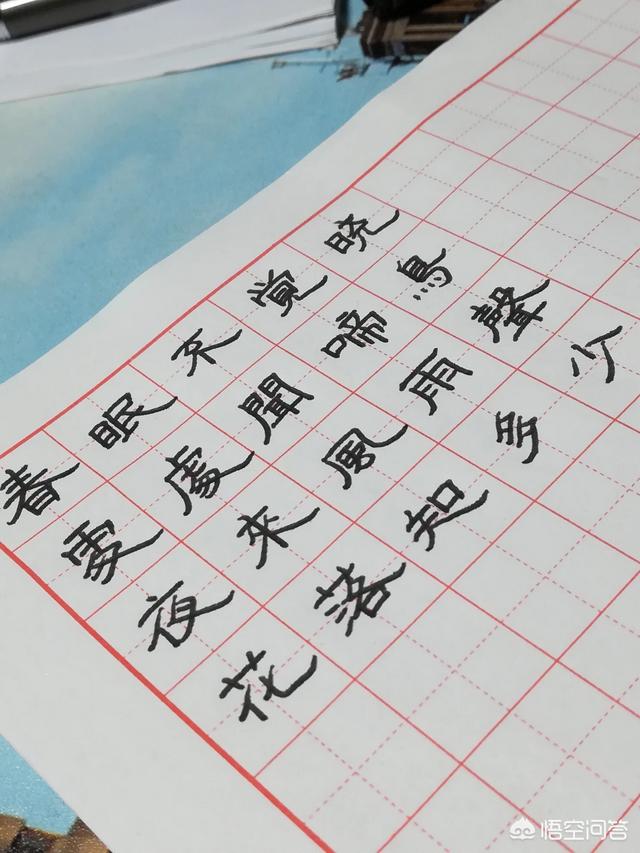 春眠不覚晓
處處聞啼鳥
夜來風雨聲
花落知多少
悟空问答